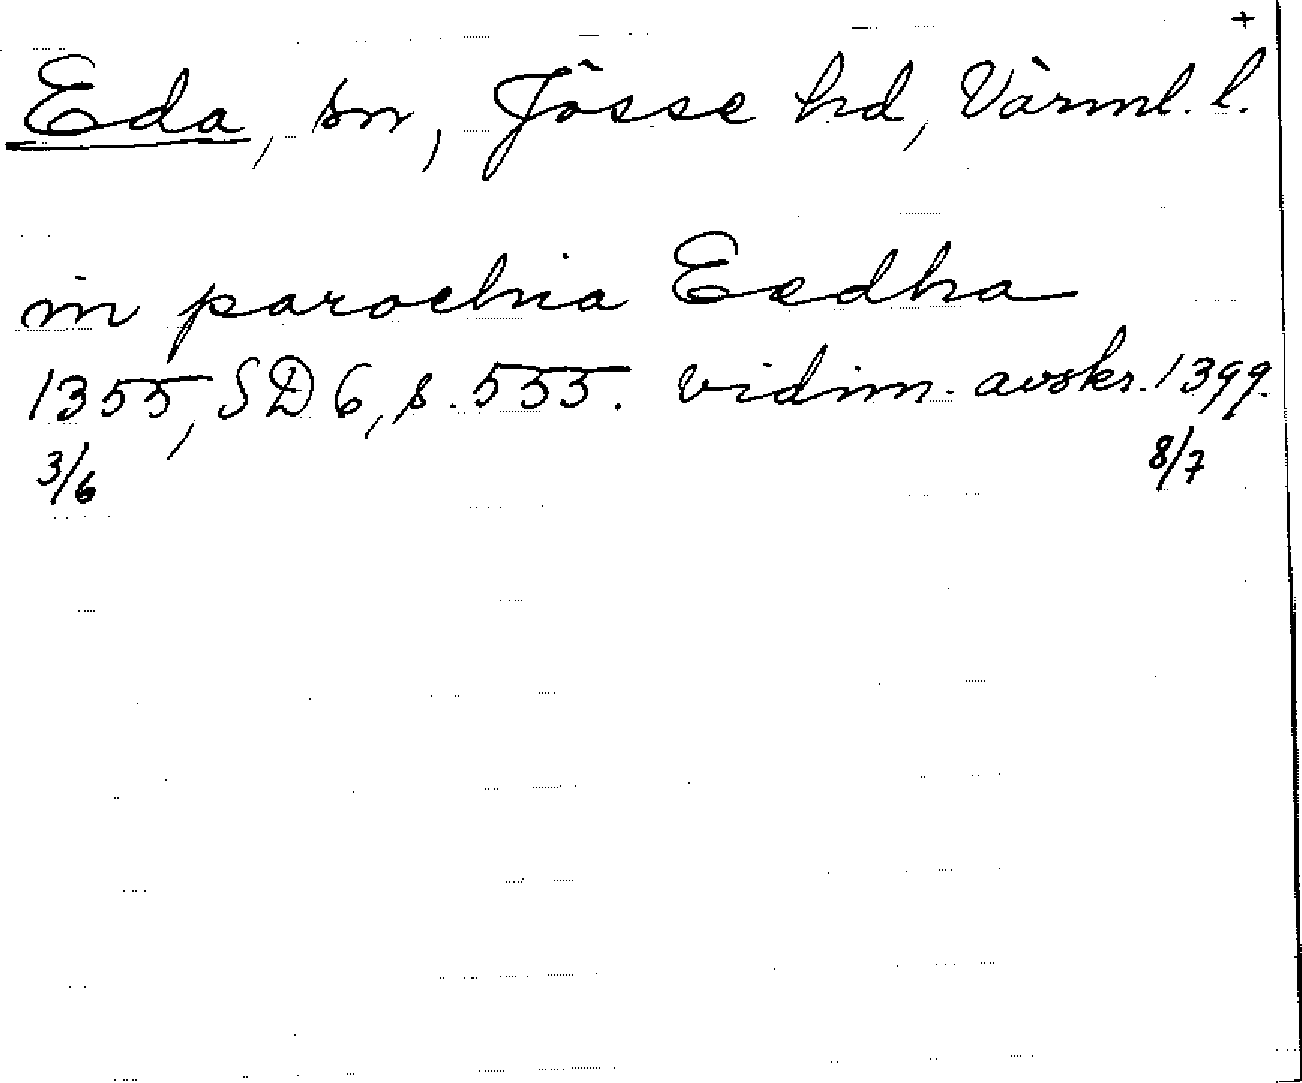 +
Eda, sn, Jösse hd, Värml. l.
in parochia Eedha
1355, SD 6, s. 555. vidim. avskr. 1399.
3/6 8/7